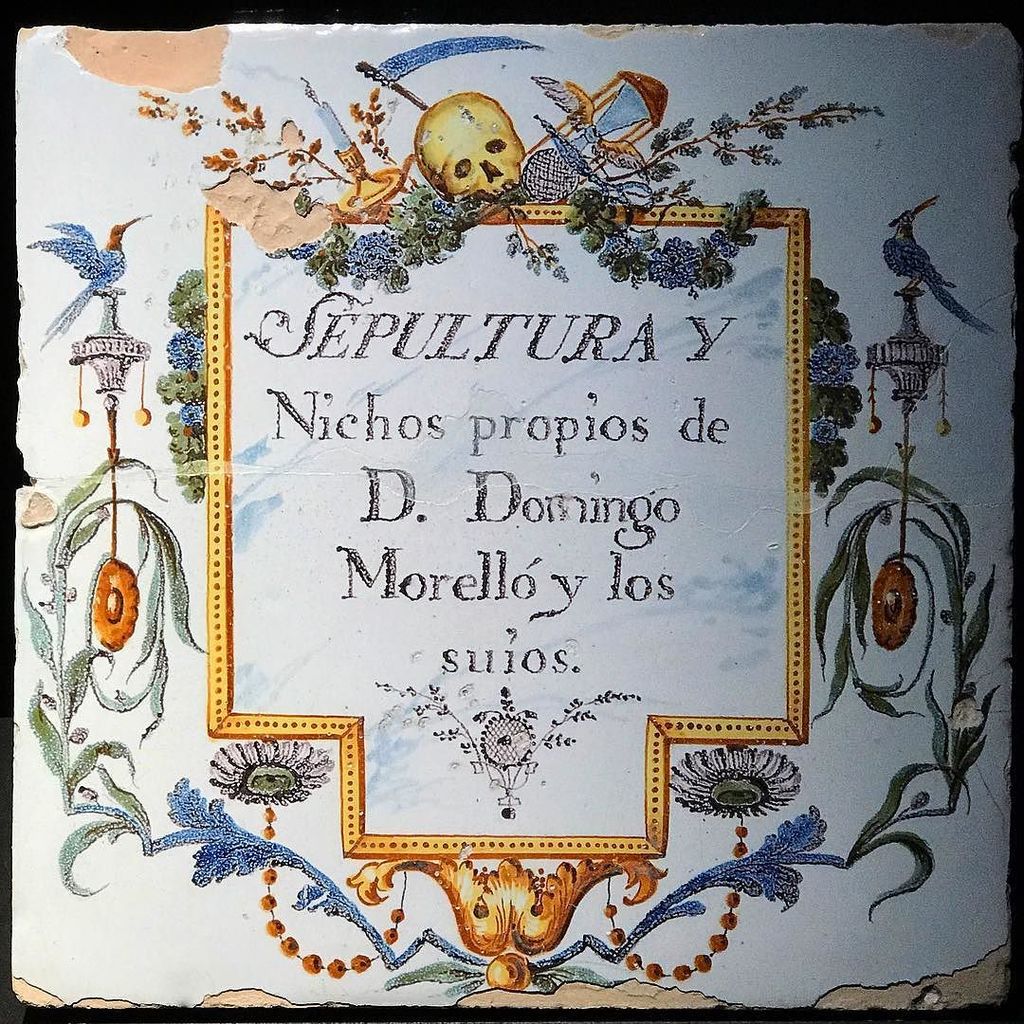 SEPULTURA Y
Nichos propios de
D. Domingo
Morelló y los
suios.